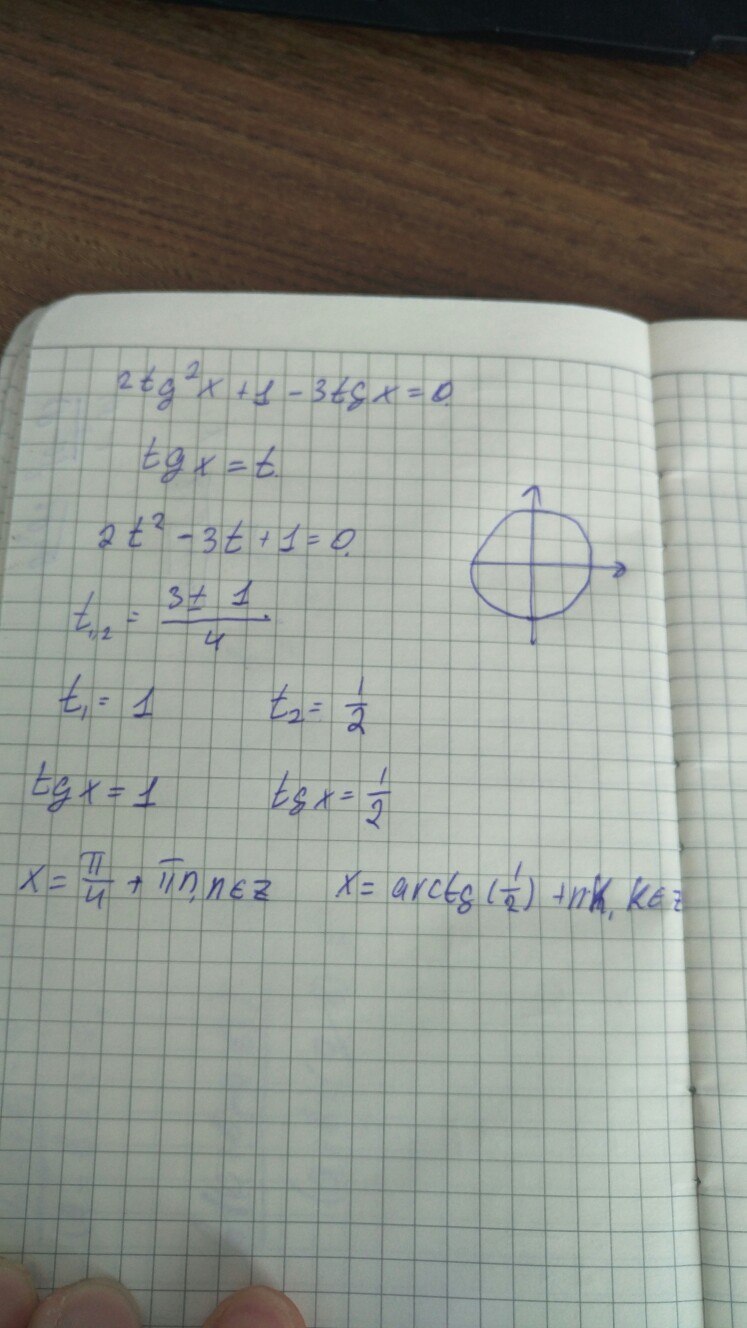 2tg²x + 1 - 3tgx = 0.
tgx = t.
2t² - 3t + 1 = 0.
t₁,₂ = (3 ± 1)/4
t₁ = 1 t₂ = 1/2
tgx = 1 tgx = 1/2
x = π/4 + πn, n∈z x = arctg(1/2) + πk, k∈z